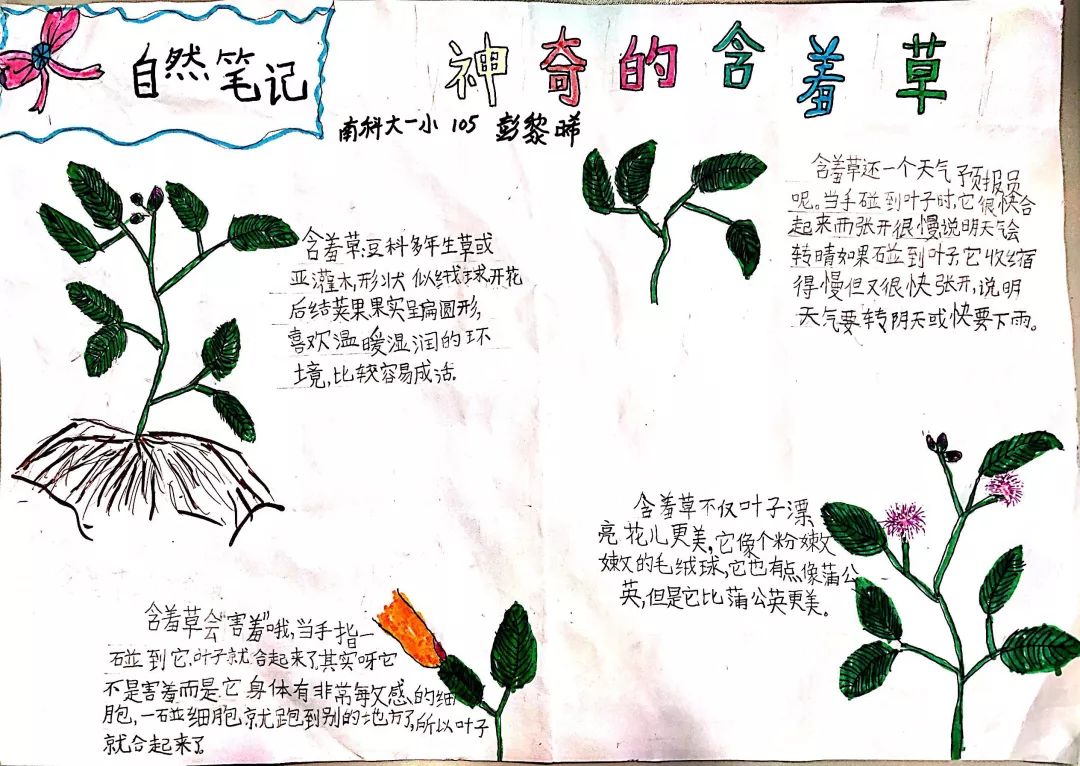 自然笔记
神奇的含羞草
南科大一小 105 彭黎晞
含羞草:豆科多年生草或
亚灌木,形状似绒球.开花
后结荚果果实呈扁圆形,
喜欢温暖湿润的环
境,比较容易成活.
含羞草还一个天气预报员
呢。当手碰到叶子时,它很快合
起来而张开很慢说明天气会
转晴如果碰到叶子,它收缩
得慢但又很快张开,说明
天气要转阴天或快要下雨。
含羞草不仅叶子漂
亮花儿更美,它像个粉嫩
嫩的毛绒球,它也有点像蒲公
英,但是它比蒲公英更美。
含羞草会“害羞”哦,当手指一
碰到它,叶子就合起来了.其实呀它
不是害羞而是它身体有非常敏感的细
胞,一碰细胞就跑到别的地方了,所以叶子
就合起来了